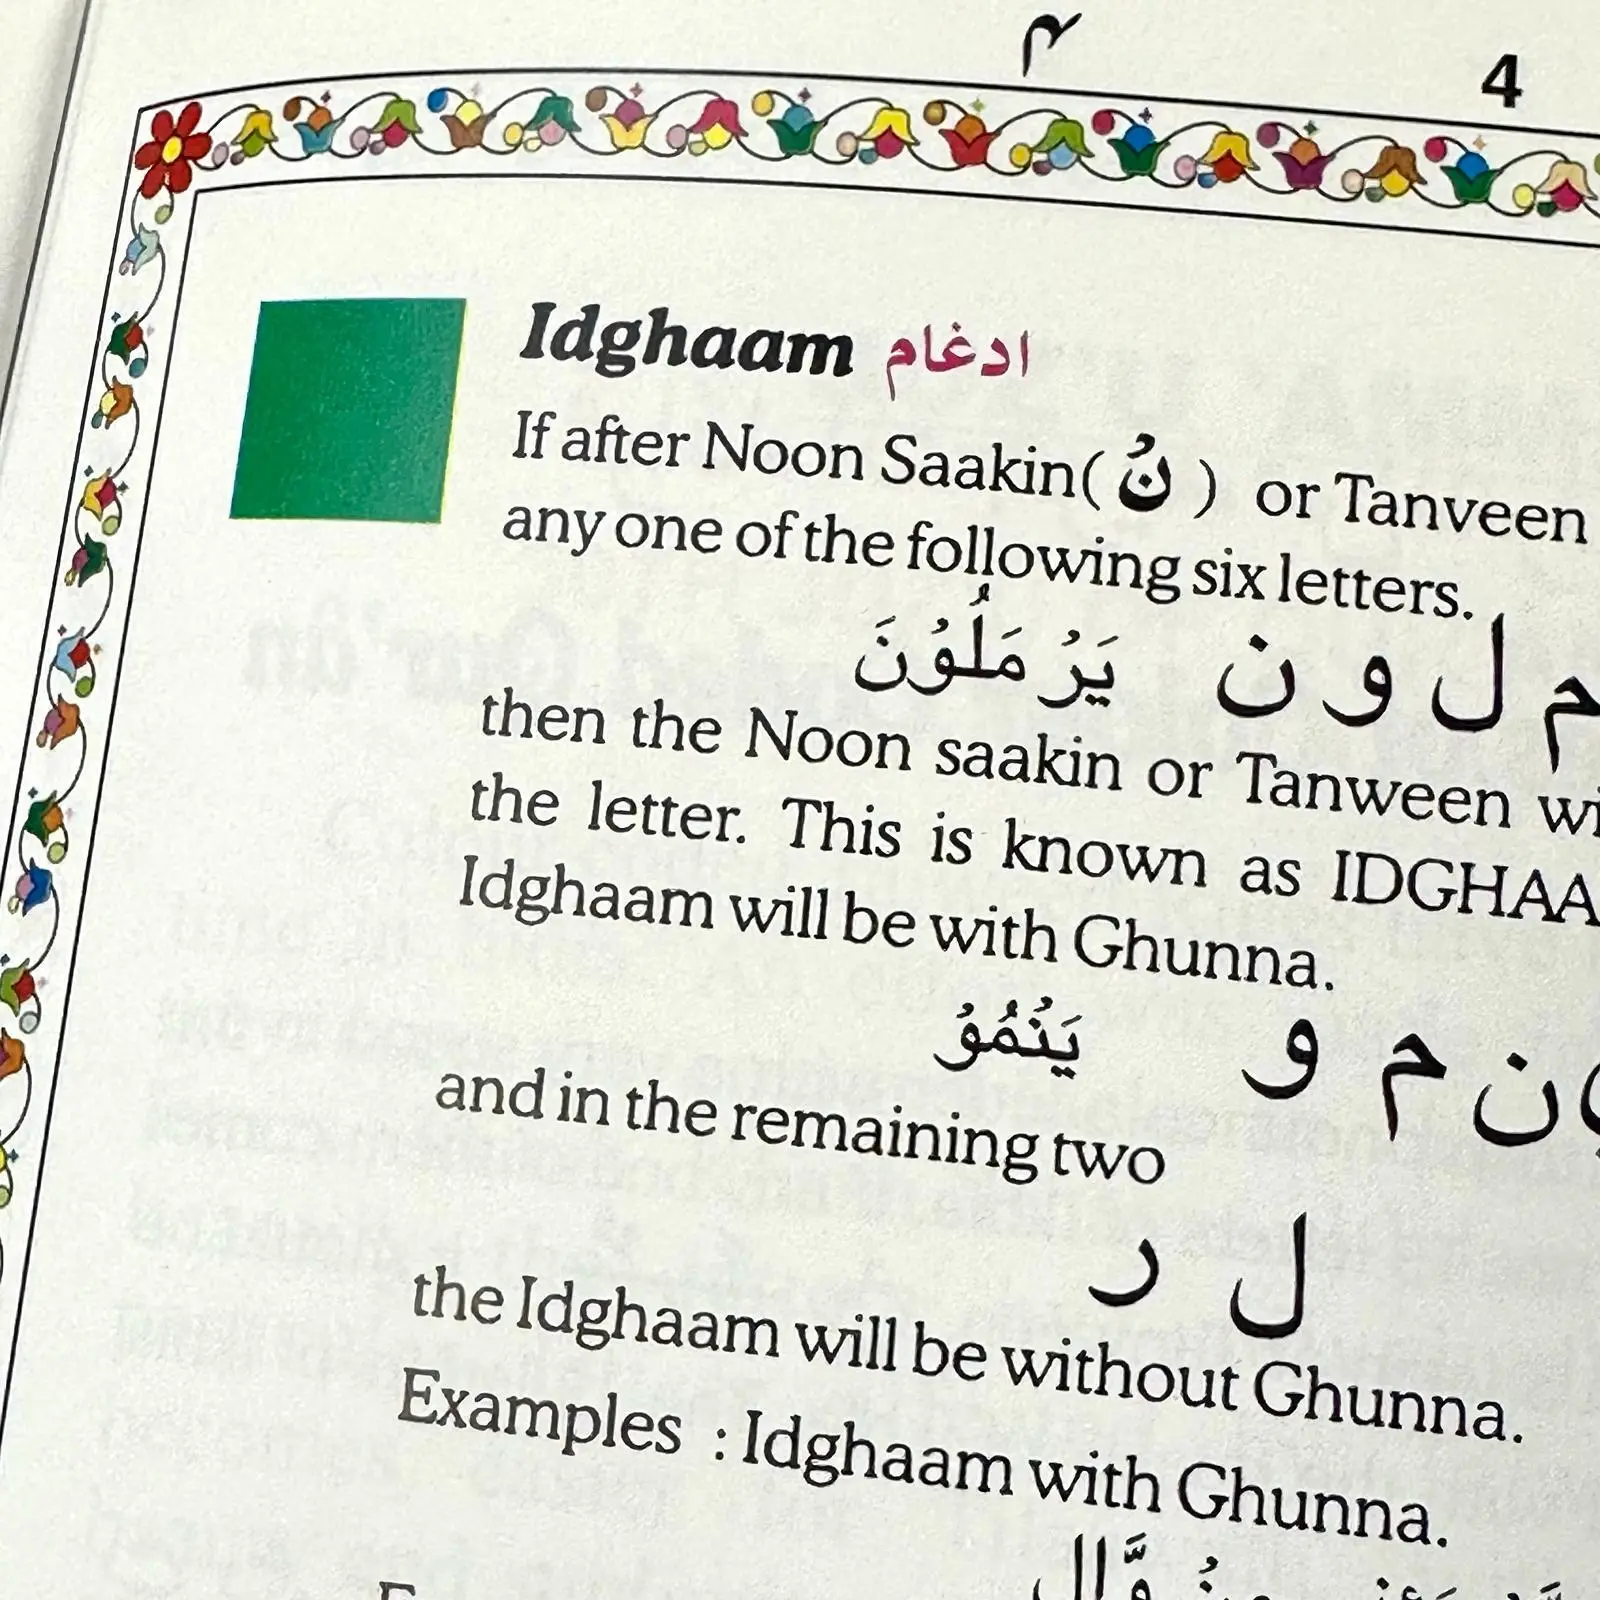 ۴ 4
Idghaam ادغام
If after Noon Saakin( نْ ) or Tanveen
any one of the following six letters.
م ل و ن يَرْمَلُوْنَ
then the Noon saakin or Tanween
the letter. This is known as
Idghaam will be with Ghunna.
ن م و يَنْمُوْ
and in the remaining two
ل ر
the Idghaam will be without Ghunna.
Examples : Idghaam with Ghunna.